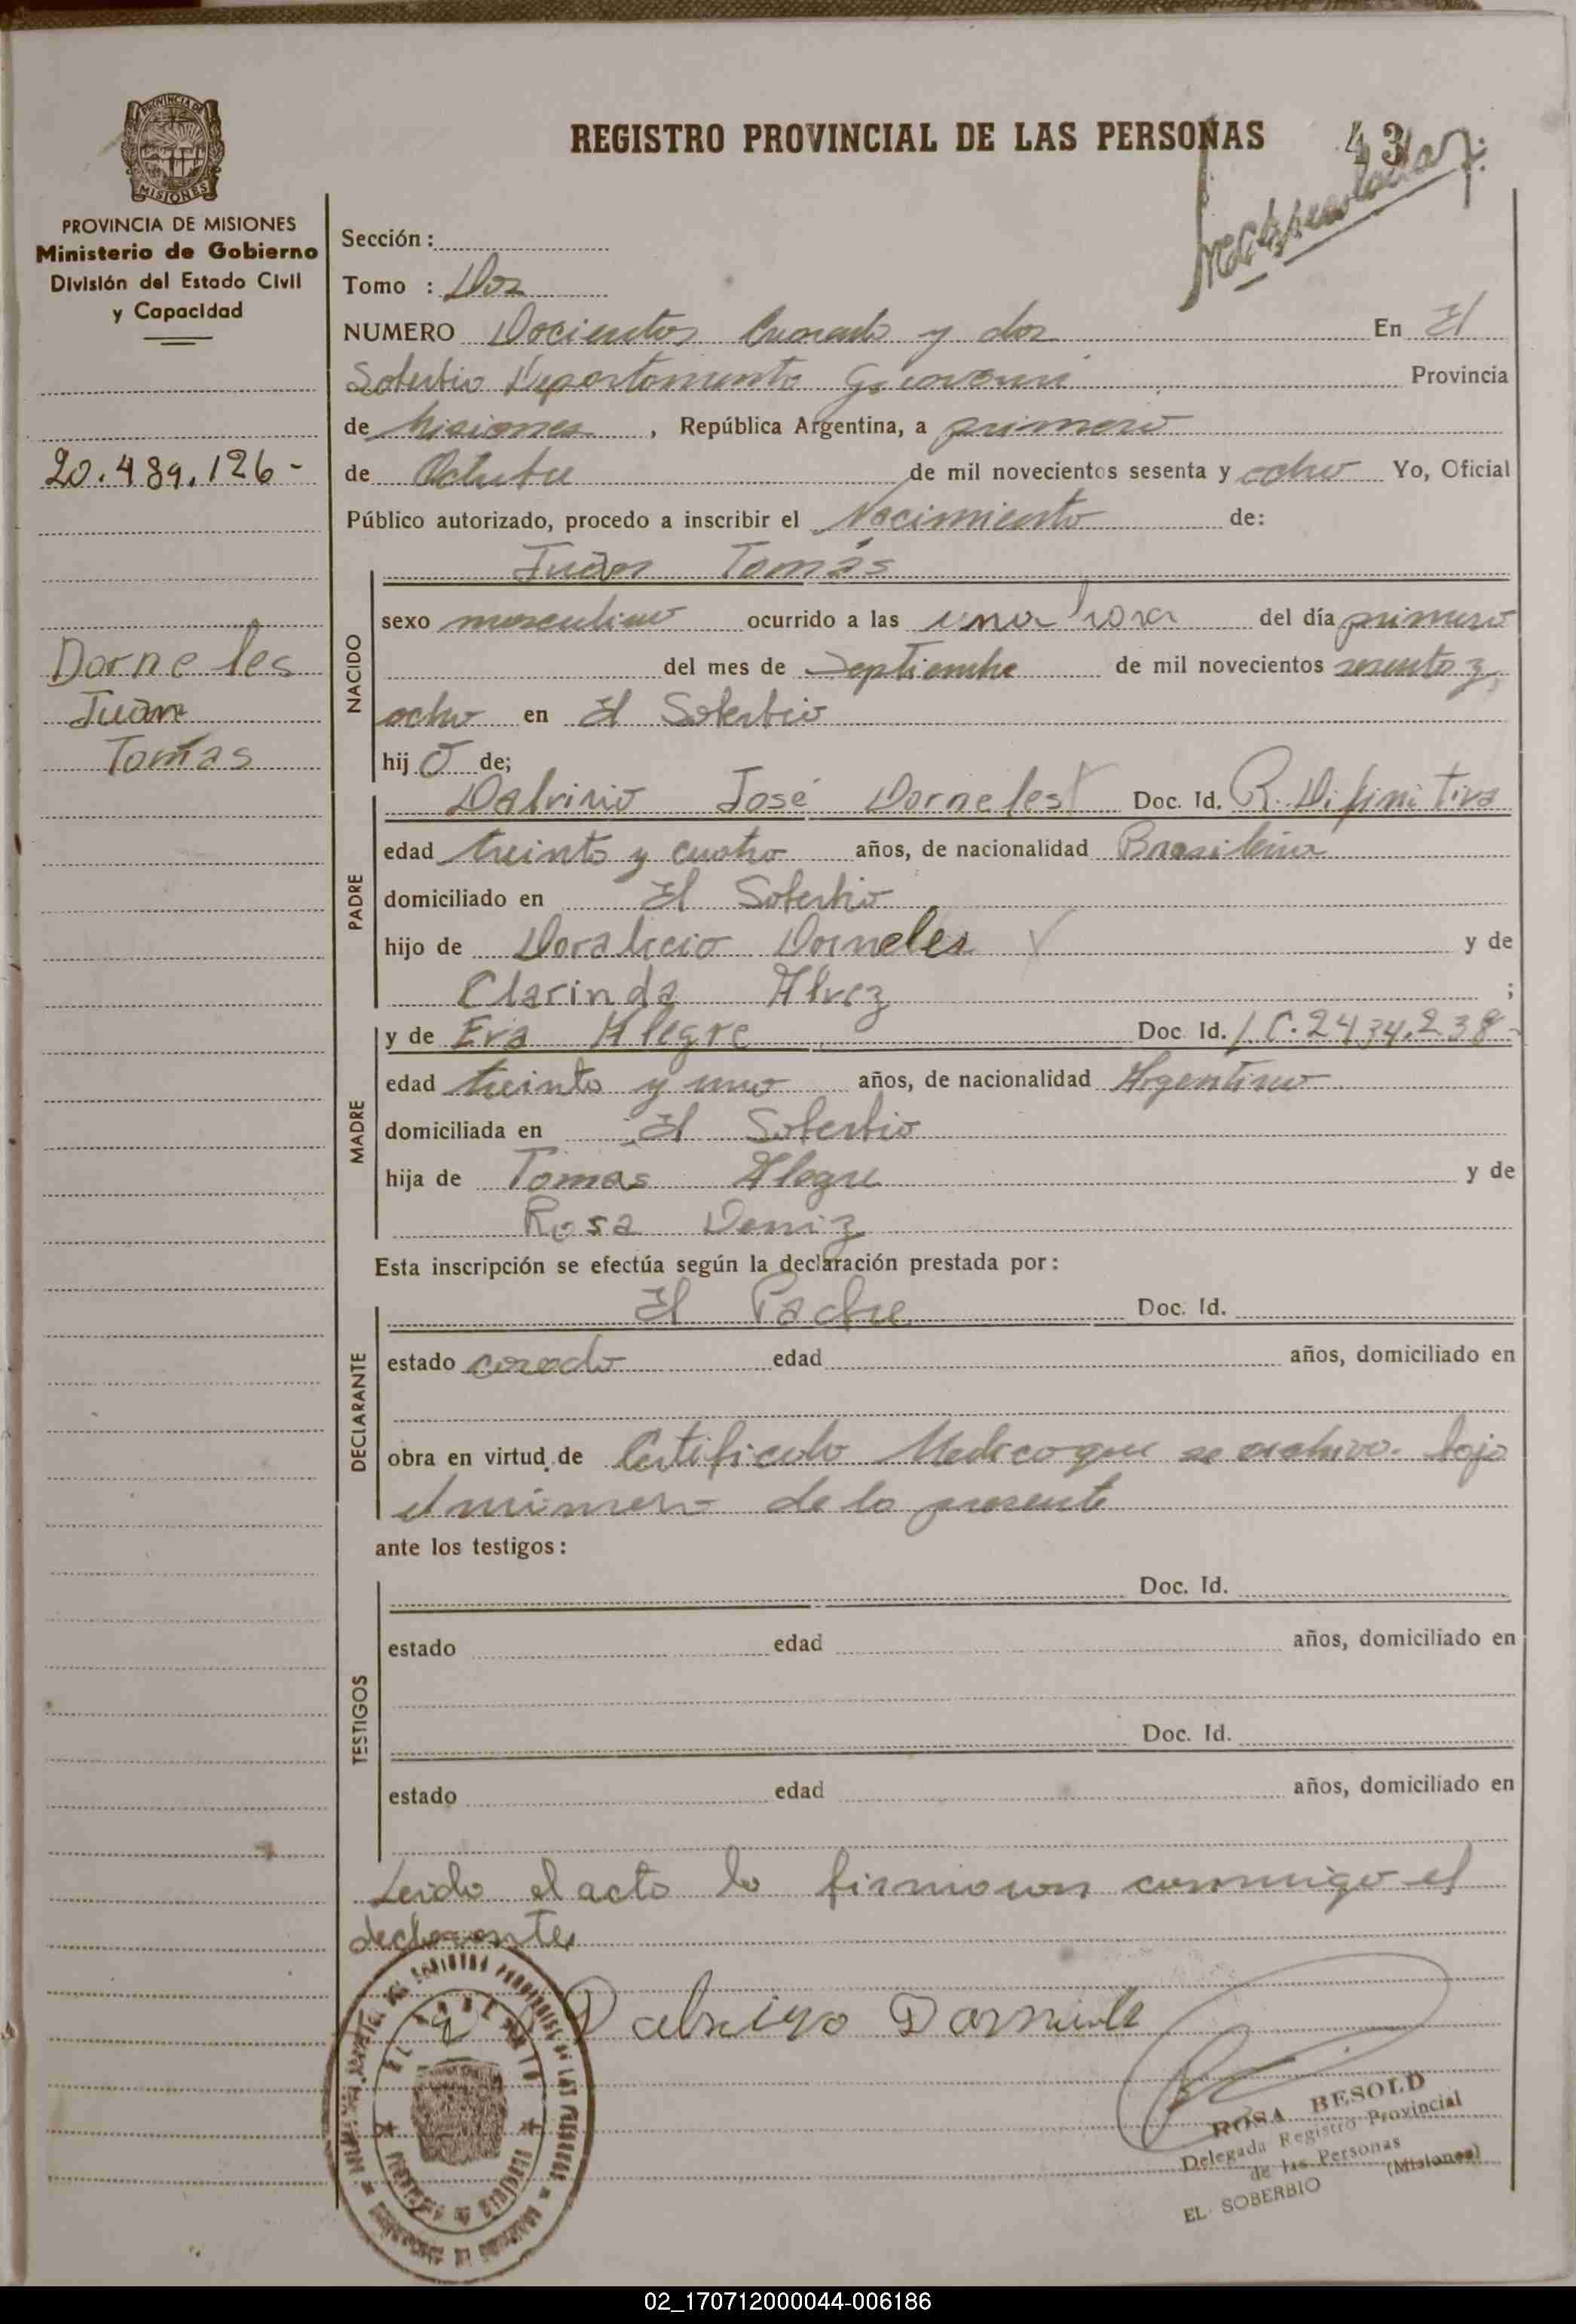 REGISTRO PROVINCIAL DE LAS PERSONAS 43
PROVINCIA DE MISIONES
MISIONES
PROVINCIA DE MISIONES
Ministerio de Gobierno
División del Estado Civil
y Capacidad
20.489.126-
Dorneles
Juan
Tomás
Sección :
Tomo : Dos
NUMERO Docientos Cuarenta y dos En El
Soberbio Departamento Guaraní Provincia
de Misiones , República Argentina, a primero
de Octubre de mil novecientos sesenta y ocho Yo, Oficial
Público autorizado, procedo a inscribir el Nacimiento de:
Juan Tomás
NACIDO
sexo masculino ocurrido a las una hora del día primero
del mes de Septiembre de mil novecientos sesenta y
ocho en El Soberbio
hij o de;
PADRE
Dalvino José Dorneles Doc. Id. R. Difinitiva
edad treinta y cuatro años, de nacionalidad Brasilera
domiciliado en El Soberbio
hijo de Doralicio Dorneles y de
Clarinda Alvez ;
MADRE
y de Eva Alegre Doc. Id. L.C. 2434.238-
edad treinta y uno años, de nacionalidad Argentina
domiciliada en El Soberbio
hija de Tomas Alegre y de
Rosa Deniz
Esta inscripción se efectúa según la declaración prestada por:
DECLARANTE
El Padre Doc. Id.
estado casado edad años, domiciliado en
obra en virtud de Certificado Medico que se archiva bajo
el número de la presente
ante los testigos:
TESTIGOS
Doc. Id.
estado edad años, domiciliado en
Doc. Id.
estado edad años, domiciliado en
Leido el acta la firmaron conmigo el
declarante
Dalvino
ROSA BESOLD
Delegada Registro Provincial
de las Personas
EL SOBERBIO (Misiones)
02_170712000044-006186